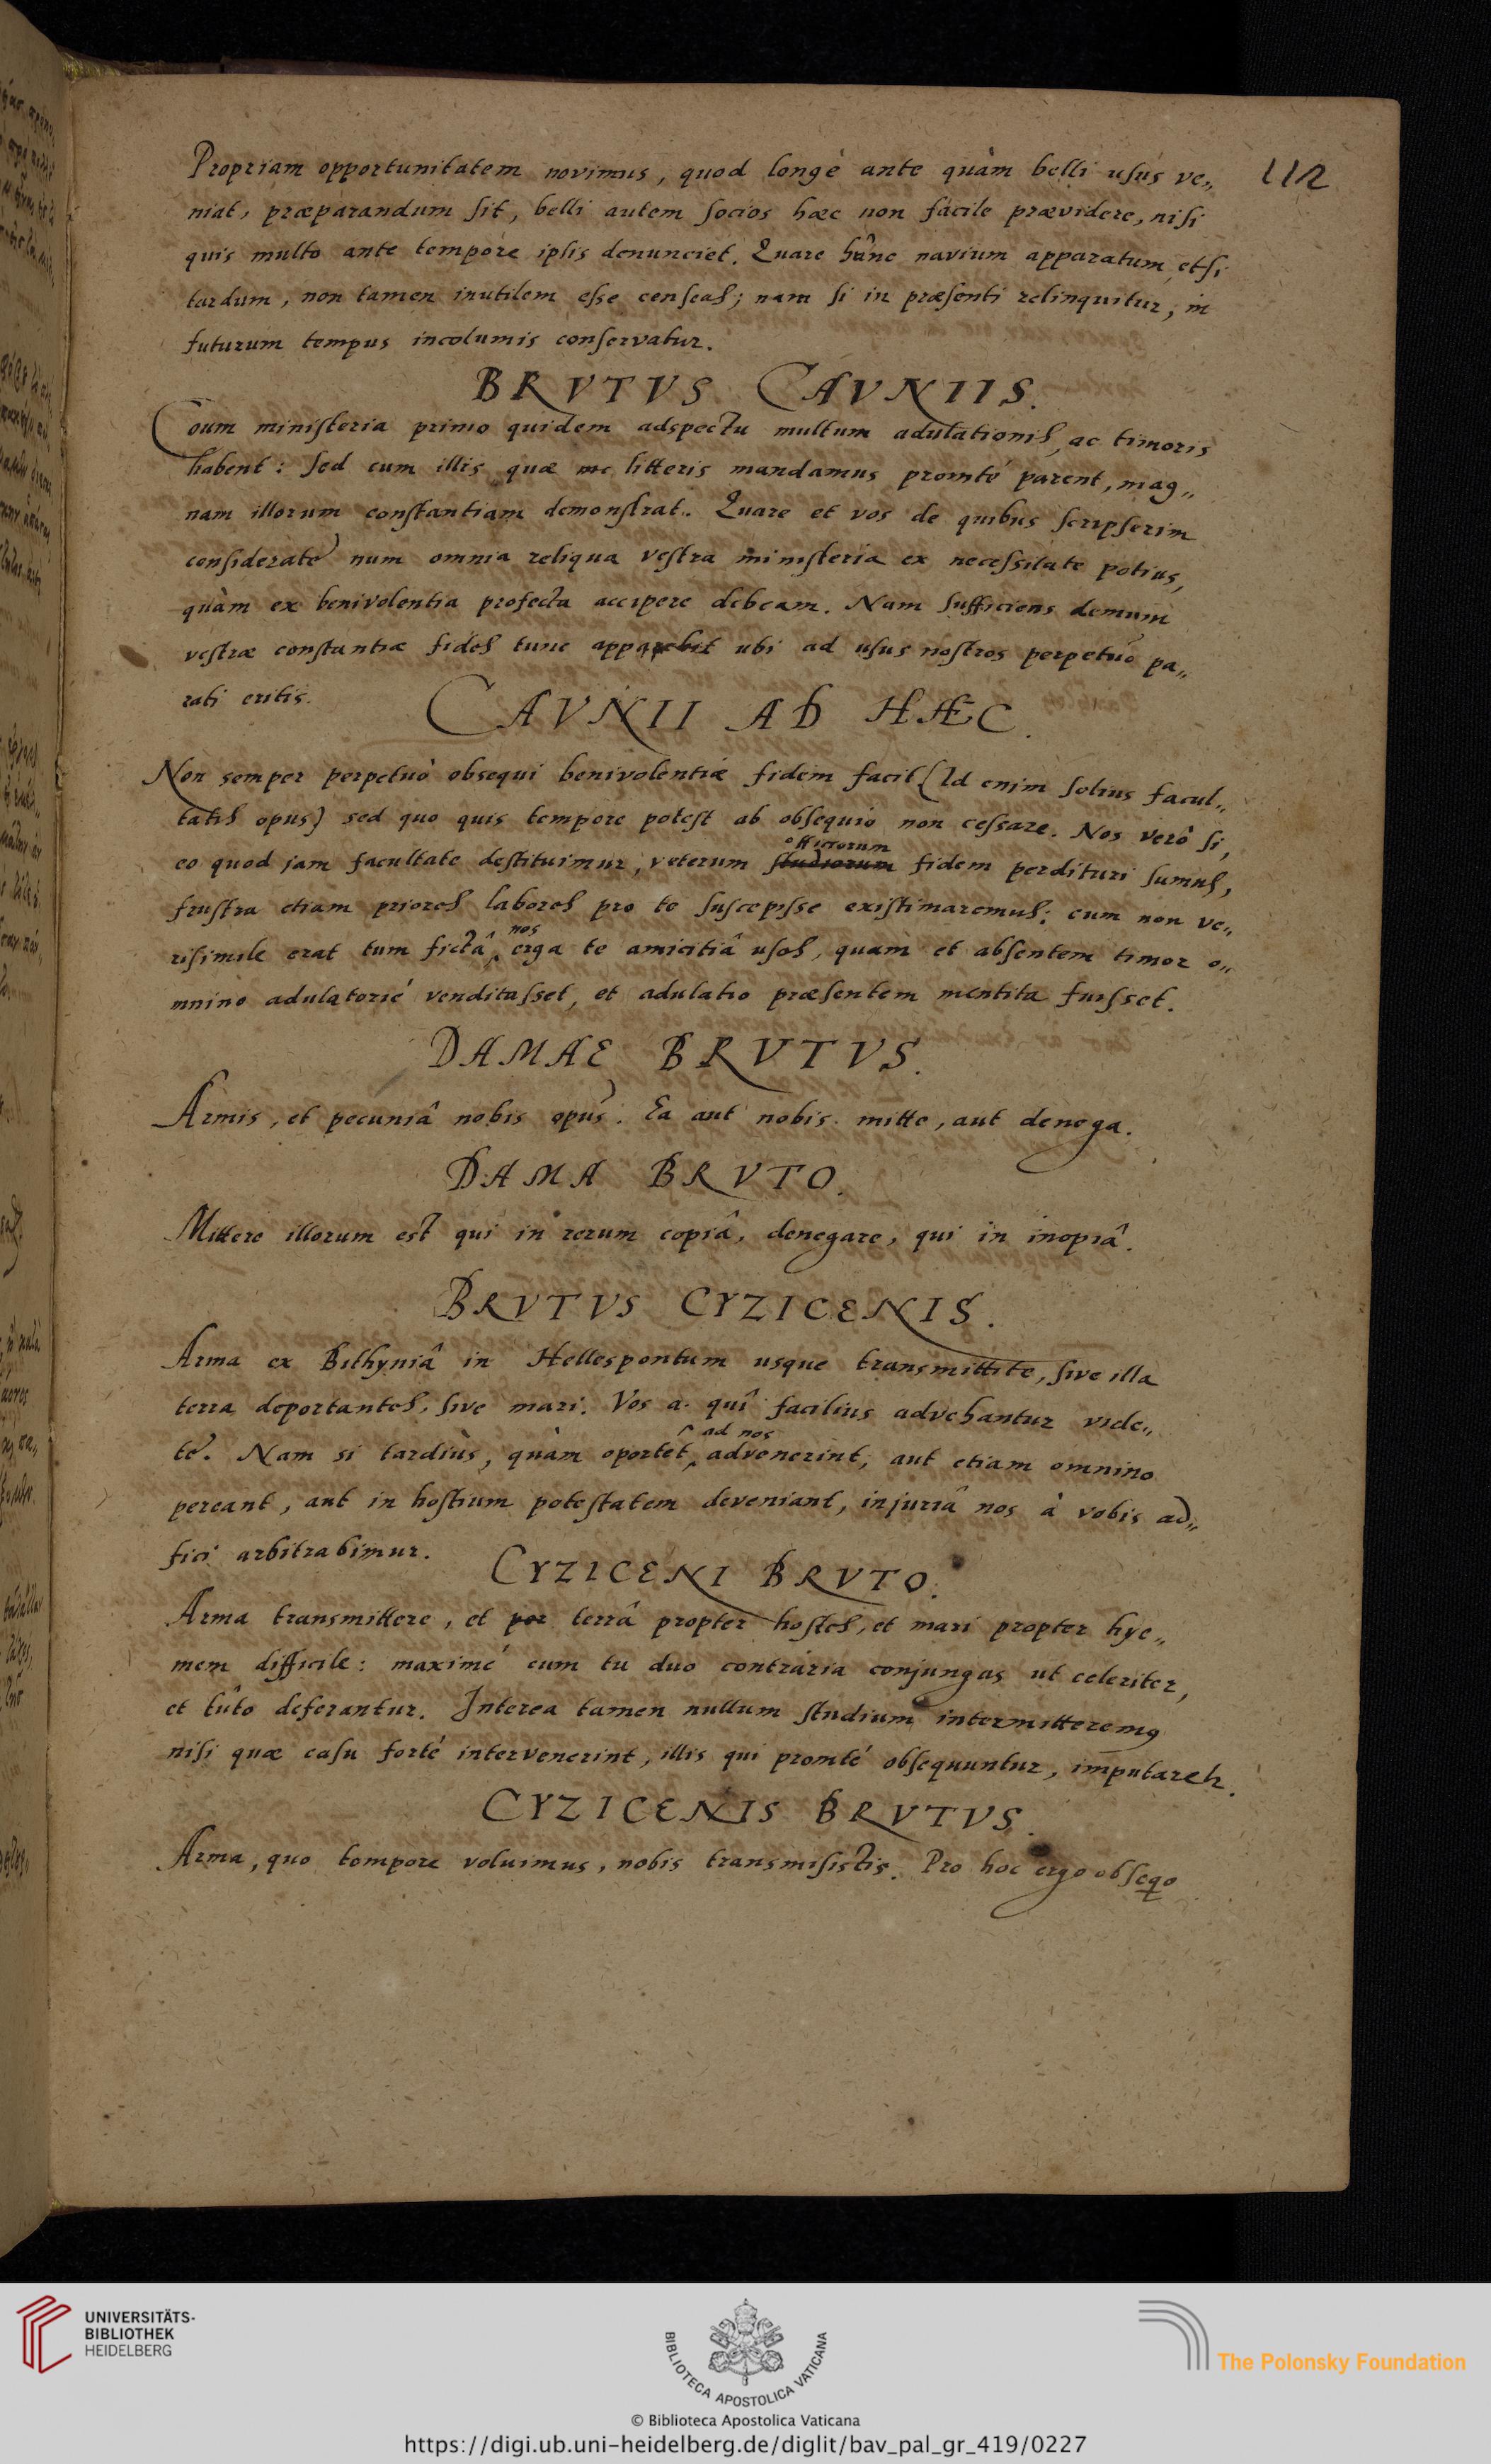 112
Propriam opportunitatem novimus, quod longè ante quàm belli usus ve„
niat, præparandum sit, belli autem socios hæc non facile prævidere, nisi
quis multo ante tempore ipsis denunciet. Quare hûnc navium apparatum, etsi
tardum, non tamen inutilem esse censeas; nam si in præsenti relinquitur, in
futurum tempus incolumis conservatur.
BRVTVS CAVNIIS.
Coum ministeria primo quidem adspectu multum adulationis, ac timoris
habent: sed cum illis quæ litteris mandamus promté parent, mag„
nam illorum constantiam demonstrat. Quare et vos de quibus scripserim
considerate num omnia reliqua vestra ministeria ex necessitate potius,
quàm ex benivolentia profecta accipere debeam. Nam sufficiens demum
vestræ constantiæ fides tunc apparebit ubi ad usus nostros perpetuò pa„
rati eritis.
CAVNII AD HÆC.
Non semper perpetuò obsequi benivolentiæ fidem facit (Id enim solius facul„
tatis opus) sed quo quis tempore potest ab obsequio non cessare. Nos verò si,
officiorum
eo quod jam facultate destituimur, veterum studiorum fidem perdituri sumus,
frustra etiam priores labores pro te suscepisse existimaremus: cum non ve„
nos
risimile erat tum fictâ erga te amicitiâ usos, quam et absentem timor o„
mnino adulatorié venditasset, et adulatio præsentem mentita fuisset.
DAMAE BRVTVS.
Armis, et pecuniâ nobis opus. Ea aut nobis mitte, aut denega.
DAMA BRVTO.
Mittere illorum est qui in rerum copiâ, denegare, qui in inopiâ.
BRVTVS CYZICENIS.
Arma ex Bithyniâ in Hellespontum usque transmittite, sive illa
terra deportantes, sive mari. Vos a. quî facilius advehantur vide„
ad nos
te. Nam si tardiùs, quàm oportet, advenerint, aut etiam omnino
pereant, aut in hostium potestatem deveniant, injuriâ nos à vobis ad„
fici arbitrabimur.
CYZICENI BRVTO.
Arma transmittere, et per terrâ propter hostes, et mari propter hye„
mem difficile: maximé cum tu duo contraria conjungas ut celeriter,
et tûto deferantur. Interea tamen nullum studium intermitteremꝰ
nisi quæ casu forté intervenerint, illis qui promté obsequuntur, imputarent.
CYZICENIS BRVTVS.
Arma, quo tempore voluimus, nobis transmisistis. Pro hoc ergo obseqo
UNIVERSITÄTS-
BIBLIOTHEK
HEIDELBERG
BIBLIOTECA APOSTOLICA VATICANA
The Polonsky Foundation
© Biblioteca Apostolica Vaticana
https://digi.ub.uni-heidelberg.de/diglit/bav_pal_gr_419/0227